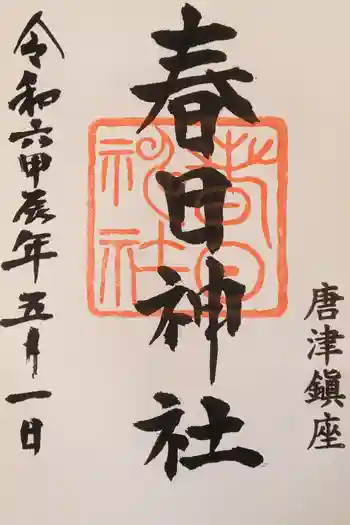 唐津鎮座
春日神社
春日神社
令和六甲辰年五月一日